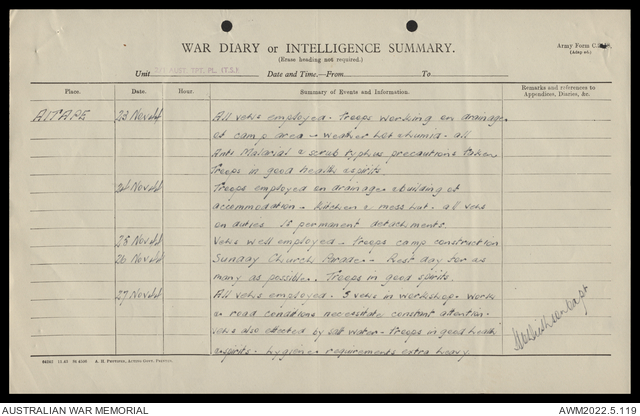 WAR DIARY or INTELLIGENCE SUMMARY.
(Erase heading not required.)
Army Form C.
Unit Date and Time.—From To
Place. Date. Hour. Summary of Events and Information. Remarks and references to Appendices, Diaries, &c.
AITAPE 23 Nov 44 All vehs employed - Troops working on drainage
of camp area - weather hot & humid - all
Anti Malarial & scrub typhus precautions taken
Troops in good health & spirits.
24 Nov 44 Troops employed on drainage & building of
accommodation - kitchen & mess hut - all vehs
on duties 15 permanent detachments.
25 Nov 44 Vehs well employed - troops camp construction
26 Nov 44 Sunday Church Parade - Rest day for as
many as possible. Troops in good spirits.
27 Nov 44 All vehs employed. 3 vehs in workshop - works
& road conditions necessitate constant attention -
vehs also effected by salt water - Troops in good health
& spirits - hygiene requirements extra heavy.
Capt
AUSTRALIAN WAR MEMORIAL AWM2022.5.119